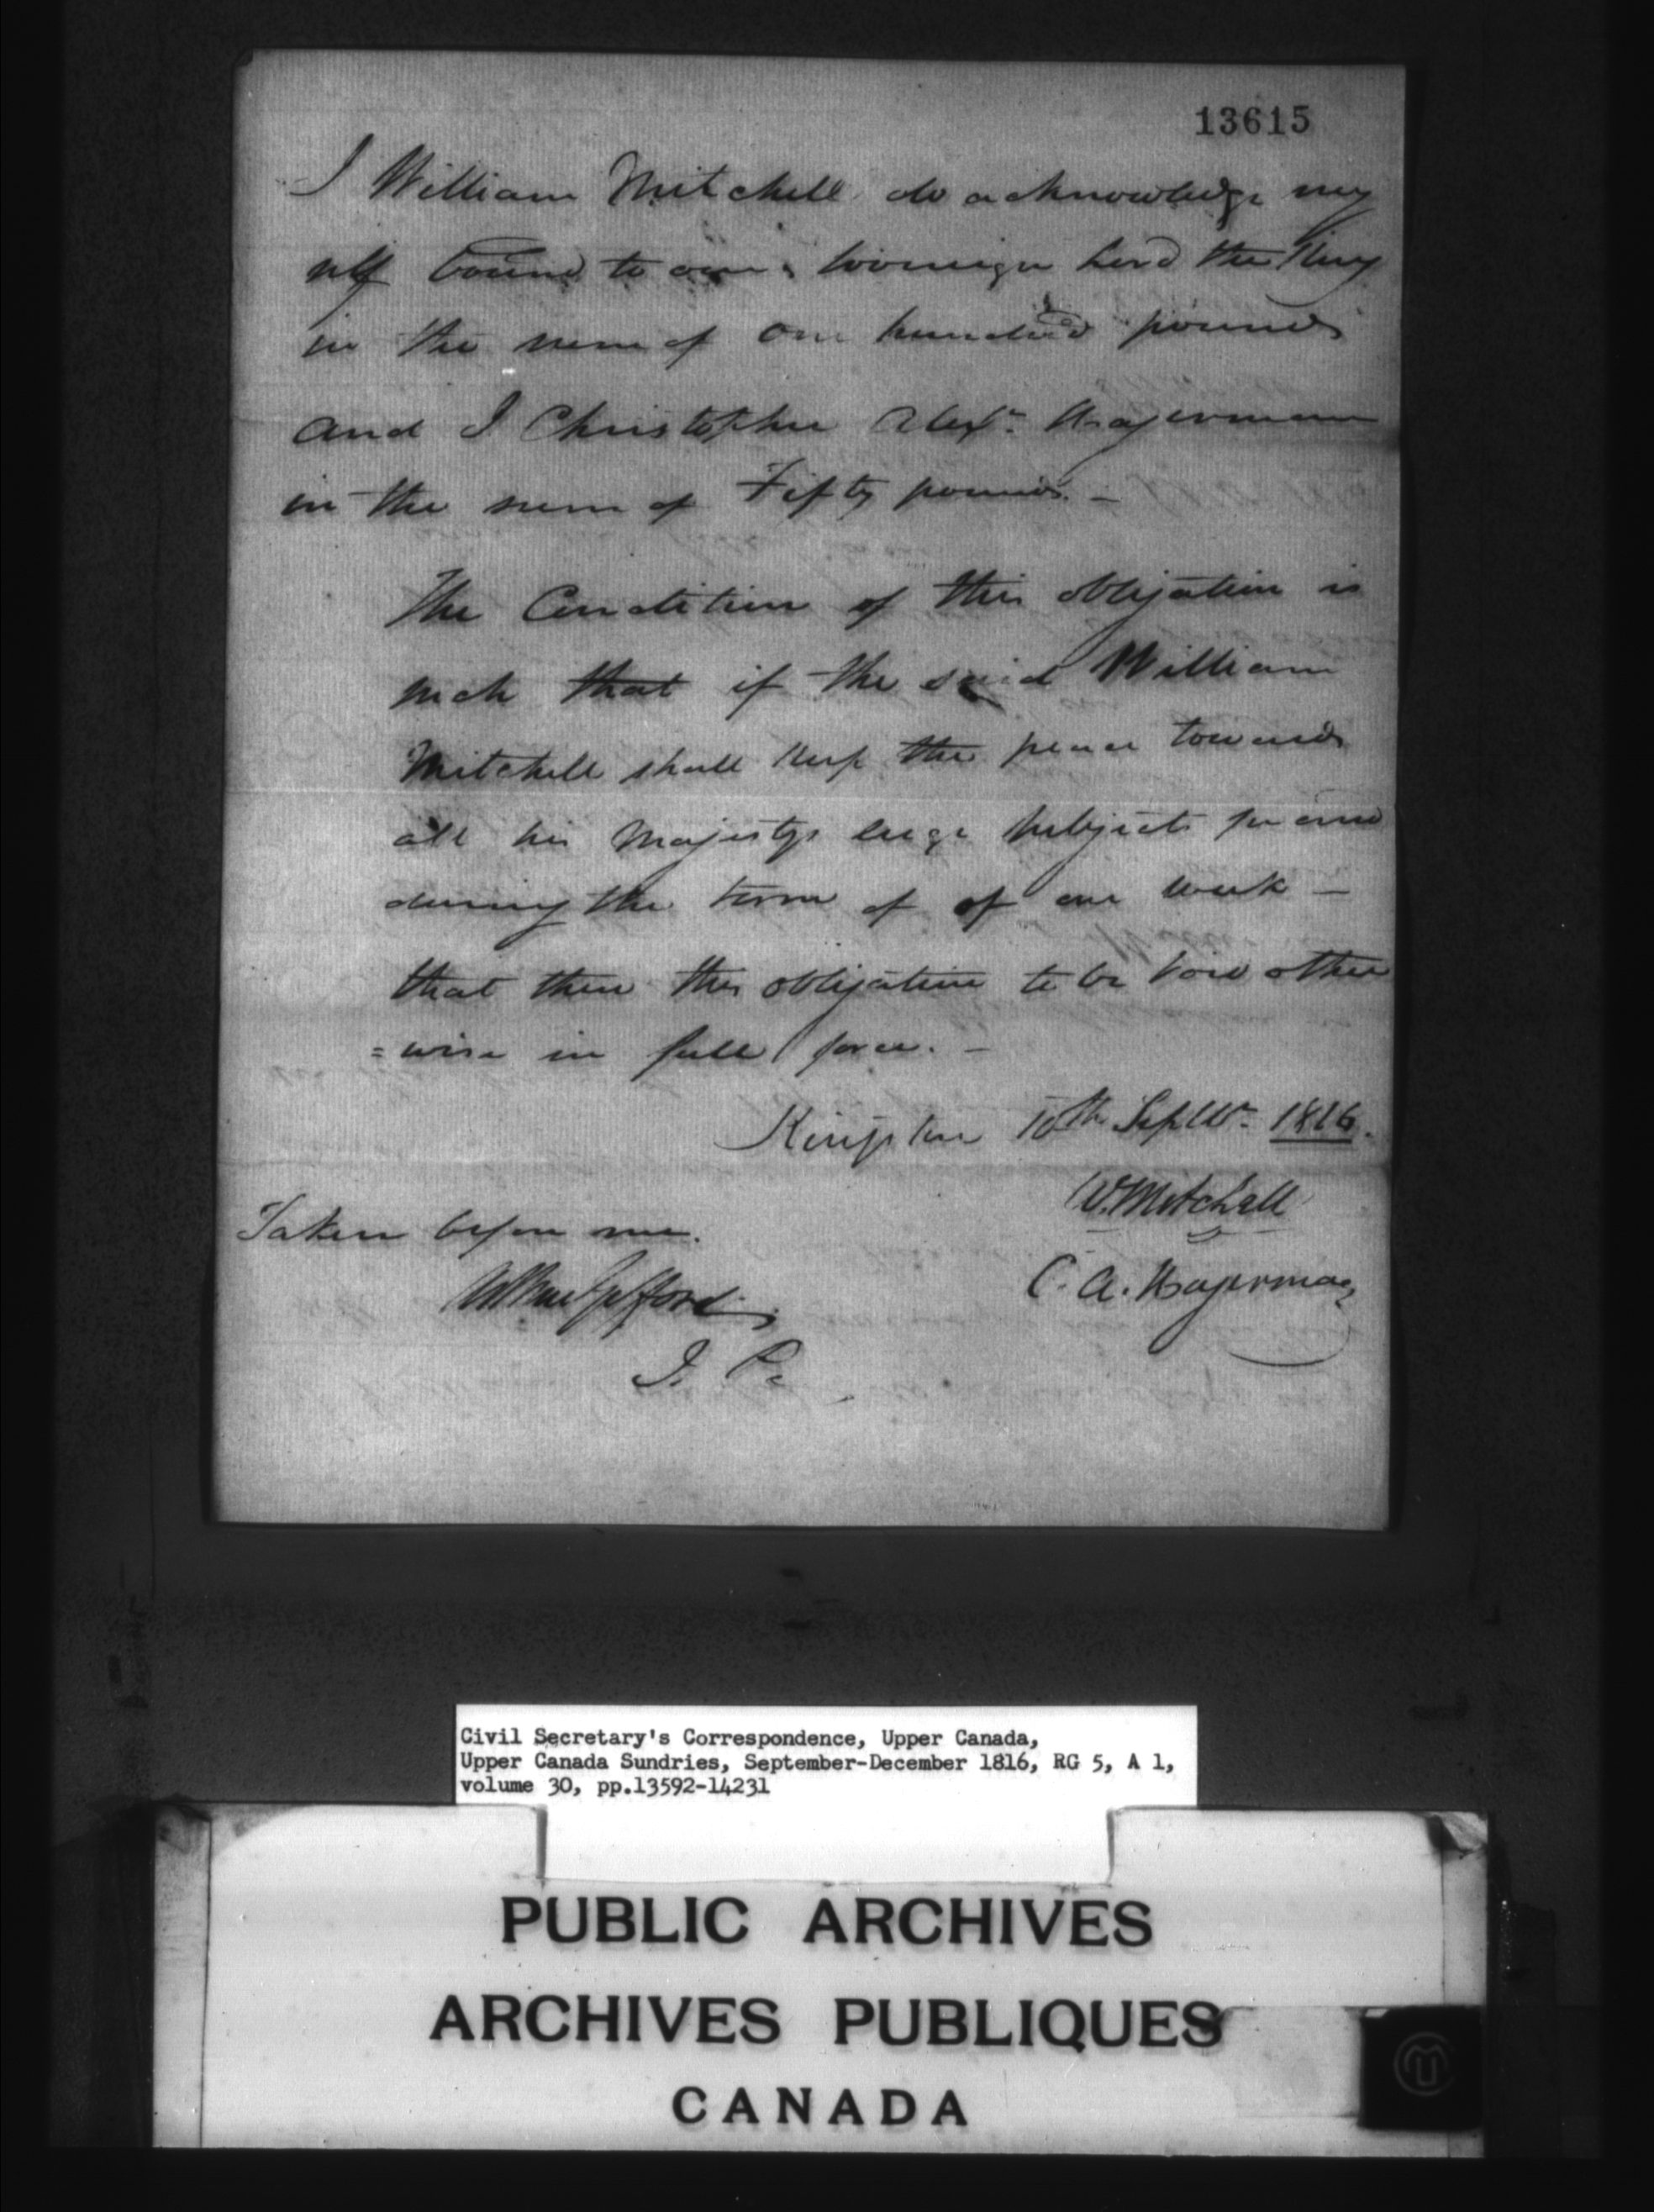 13615
I William Mitchell do acknowledge my
self bound to our sovereign Lord the King
in the sum of one hundred pounds
and I Christopher Alexr. Hagerman
in the sum of Fifty pounds. —
The Condition of this obligation is
such that if the said William
Mitchell shall keep the peace towards
all his Majestys liege subjects for and
during the term of of one week —
that then this obligation to be void other
=wise in full force. —
Kingston 10th Septbr. 1816.
W. Mitchell
Taken before me.
C. A. Hagerman
J. P.
Civil Secretary's Correspondence, Upper Canada,
Upper Canada Sundries, September-December 1816, RG 5, A 1,
volume 30, pp.13592-14231
PUBLIC ARCHIVES
ARCHIVES PUBLIQUES
CANADA